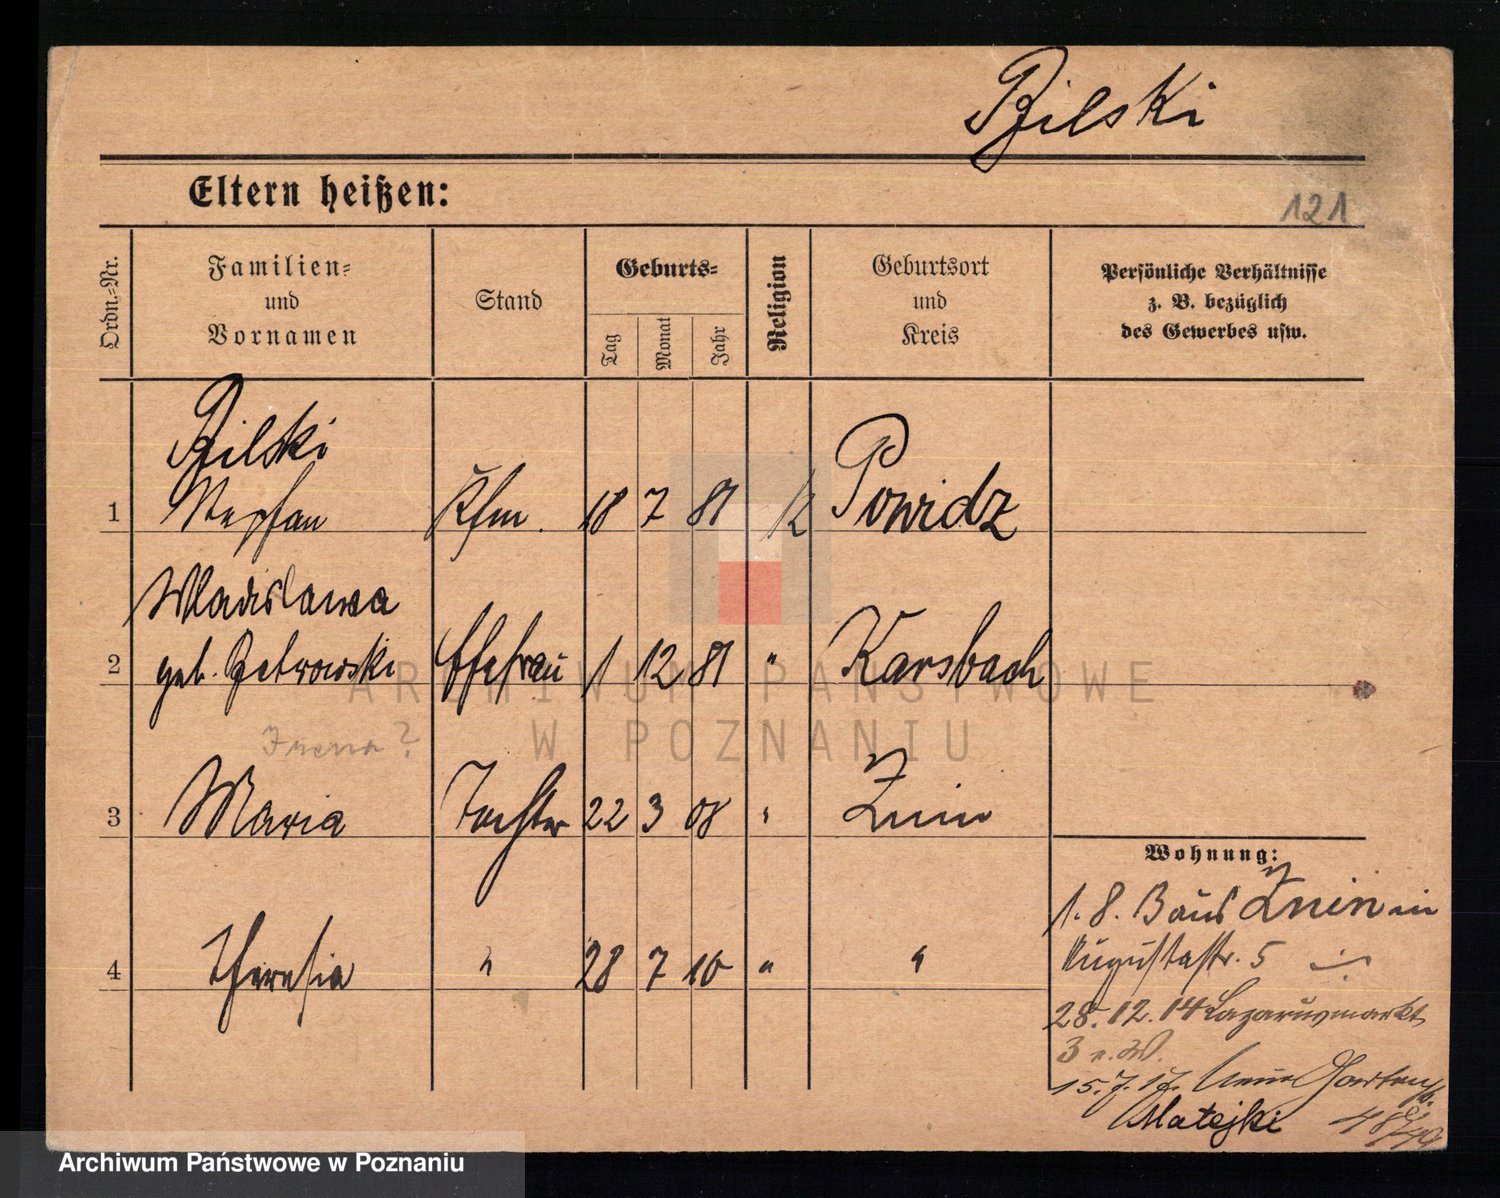 Bilski
Eltern heißen:
121
Ordn.-Nr.
Familien-
und
Vornamen
Stand
Geburts-
Tag
Monat
Jahr
Religion
Geburtsort
und
Kreis
Persönliche Verhältnisse
z. B. bezüglich
des Gewerbes usw.
Bilski
1 Stephan Kfm. 18 7 81 K Powidz
Wladislawa
2 geb. Petrowski Ehefrau 1 12 81 " Karsbach
Irena?
3 Maria Tochter 22 3 08 " Żnin
4 Theresia " 28 7 10 " "
Wohnung:
1. 8. Żnin
Augustastr. 5
28. 12. 14 Lazarusmarkt
3
15. 7. 17. Neue Gartenstr.
Matejki
ARCHIWUM PAŃSTWOWE
W POZNANIU
Archiwum Państwowe w Poznaniu